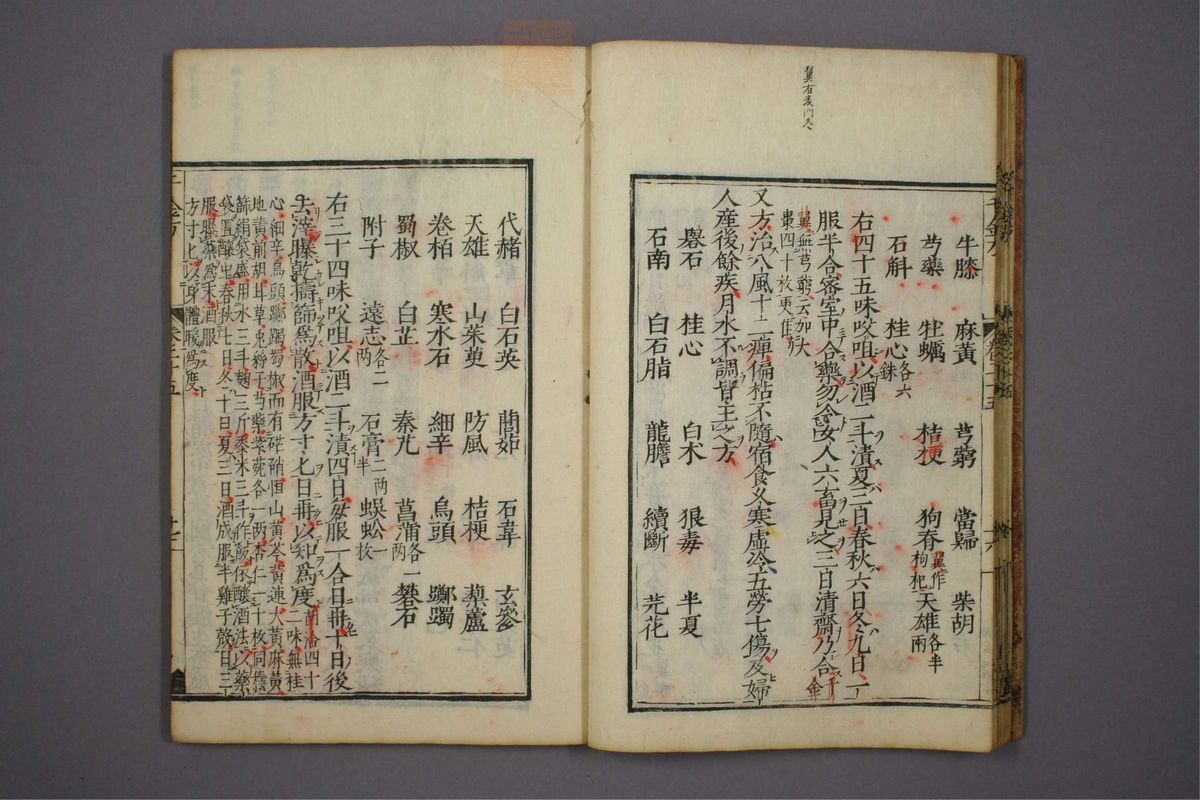 翼有麦門冬
牛膝 麻黃 芎藭 當歸 柴胡
芍藥 牡蠣 桔梗 狗脊翼作枸杞 天雄各半兩
石斛 桂心各六銖
右四十五味㕮咀以酒二斗漬夏三日春秋六日冬九日一
服半合密室中合藥勿令女人六畜見之三日清齋乃合千金
翼無芎藭云加大
棗四十枚更佳
又方治八風十二痺偏枯不隨宿食久寒虛冷五勞七傷及婦
人産後餘疾月水不調皆主之方
礜石 桂心 白朮 狼毒 半夏
石南 白石脂 龍膽 續斷 芫花
代赭 白石英 䕡茹 石韋 玄參
天雄 山茱萸 防風 桔梗 藜蘆
卷柏 寒水石 細辛 烏頭 躑躅
蜀椒 白芷 秦艽 菖蒲各一兩 礬石
附子 遠志各二兩 石膏二兩半 蜈蚣二枚
右三十四味㕮咀以酒二斗漬四日每服一合日再十日後
去滓曝乾擣篩爲散酒服方寸匕日再以知爲度胡洽四十二味無桂
心細辛烏頭躑躅蜀椒而有硭硝恒山黃芩黃連大黃麻黃
地黃前胡甘草兔絲子芍藥紫菀各一兩杏仁二十枚同擣
篩絹袋盛用水三斗麴三斤黍米三斗作飯依釀酒法以藥
袋置釀中春秋七日冬十日夏三日酒成服半雞子殼日三
服曝藥爲末酒服
方寸匕以身體暖爲度
千金方 卷二十五